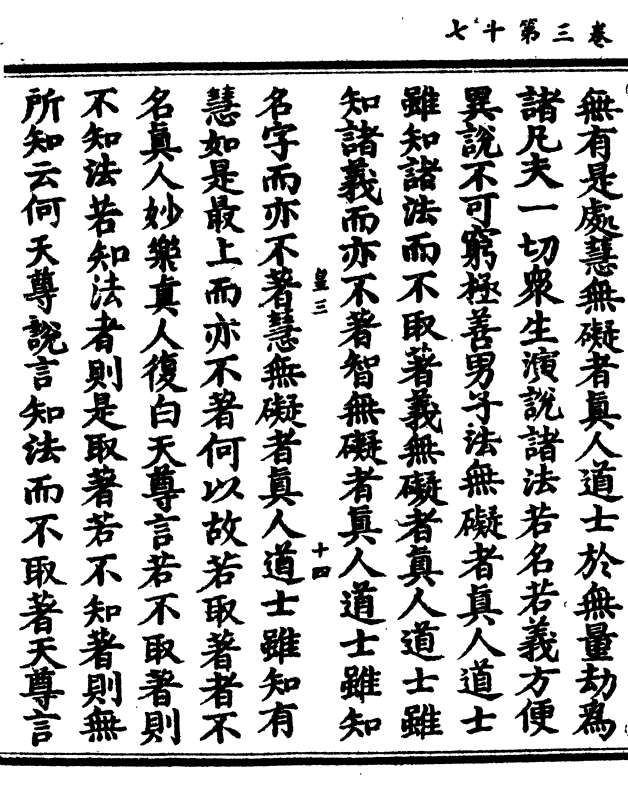 七十第三卷
無有是處慧無礙者真人道士於無量劫為
諸凡夫一切衆生演說諸法若名若義方便
異說不可窮極善男子法無礙者真人道士
雖知諸法而不取著義無礙者真人道士雖
知諸義而亦不著智無礙者真人道士雖知
皇三
十四
名字而亦不著慧無礙者真人道士雖知有
慧如是最上而亦不著何以故若取著者不
名真人妙樂真人復白天尊言若不取著則
不知法若知法者則是取著若不知著則無
所知云何天尊說言知法而不取著天尊言